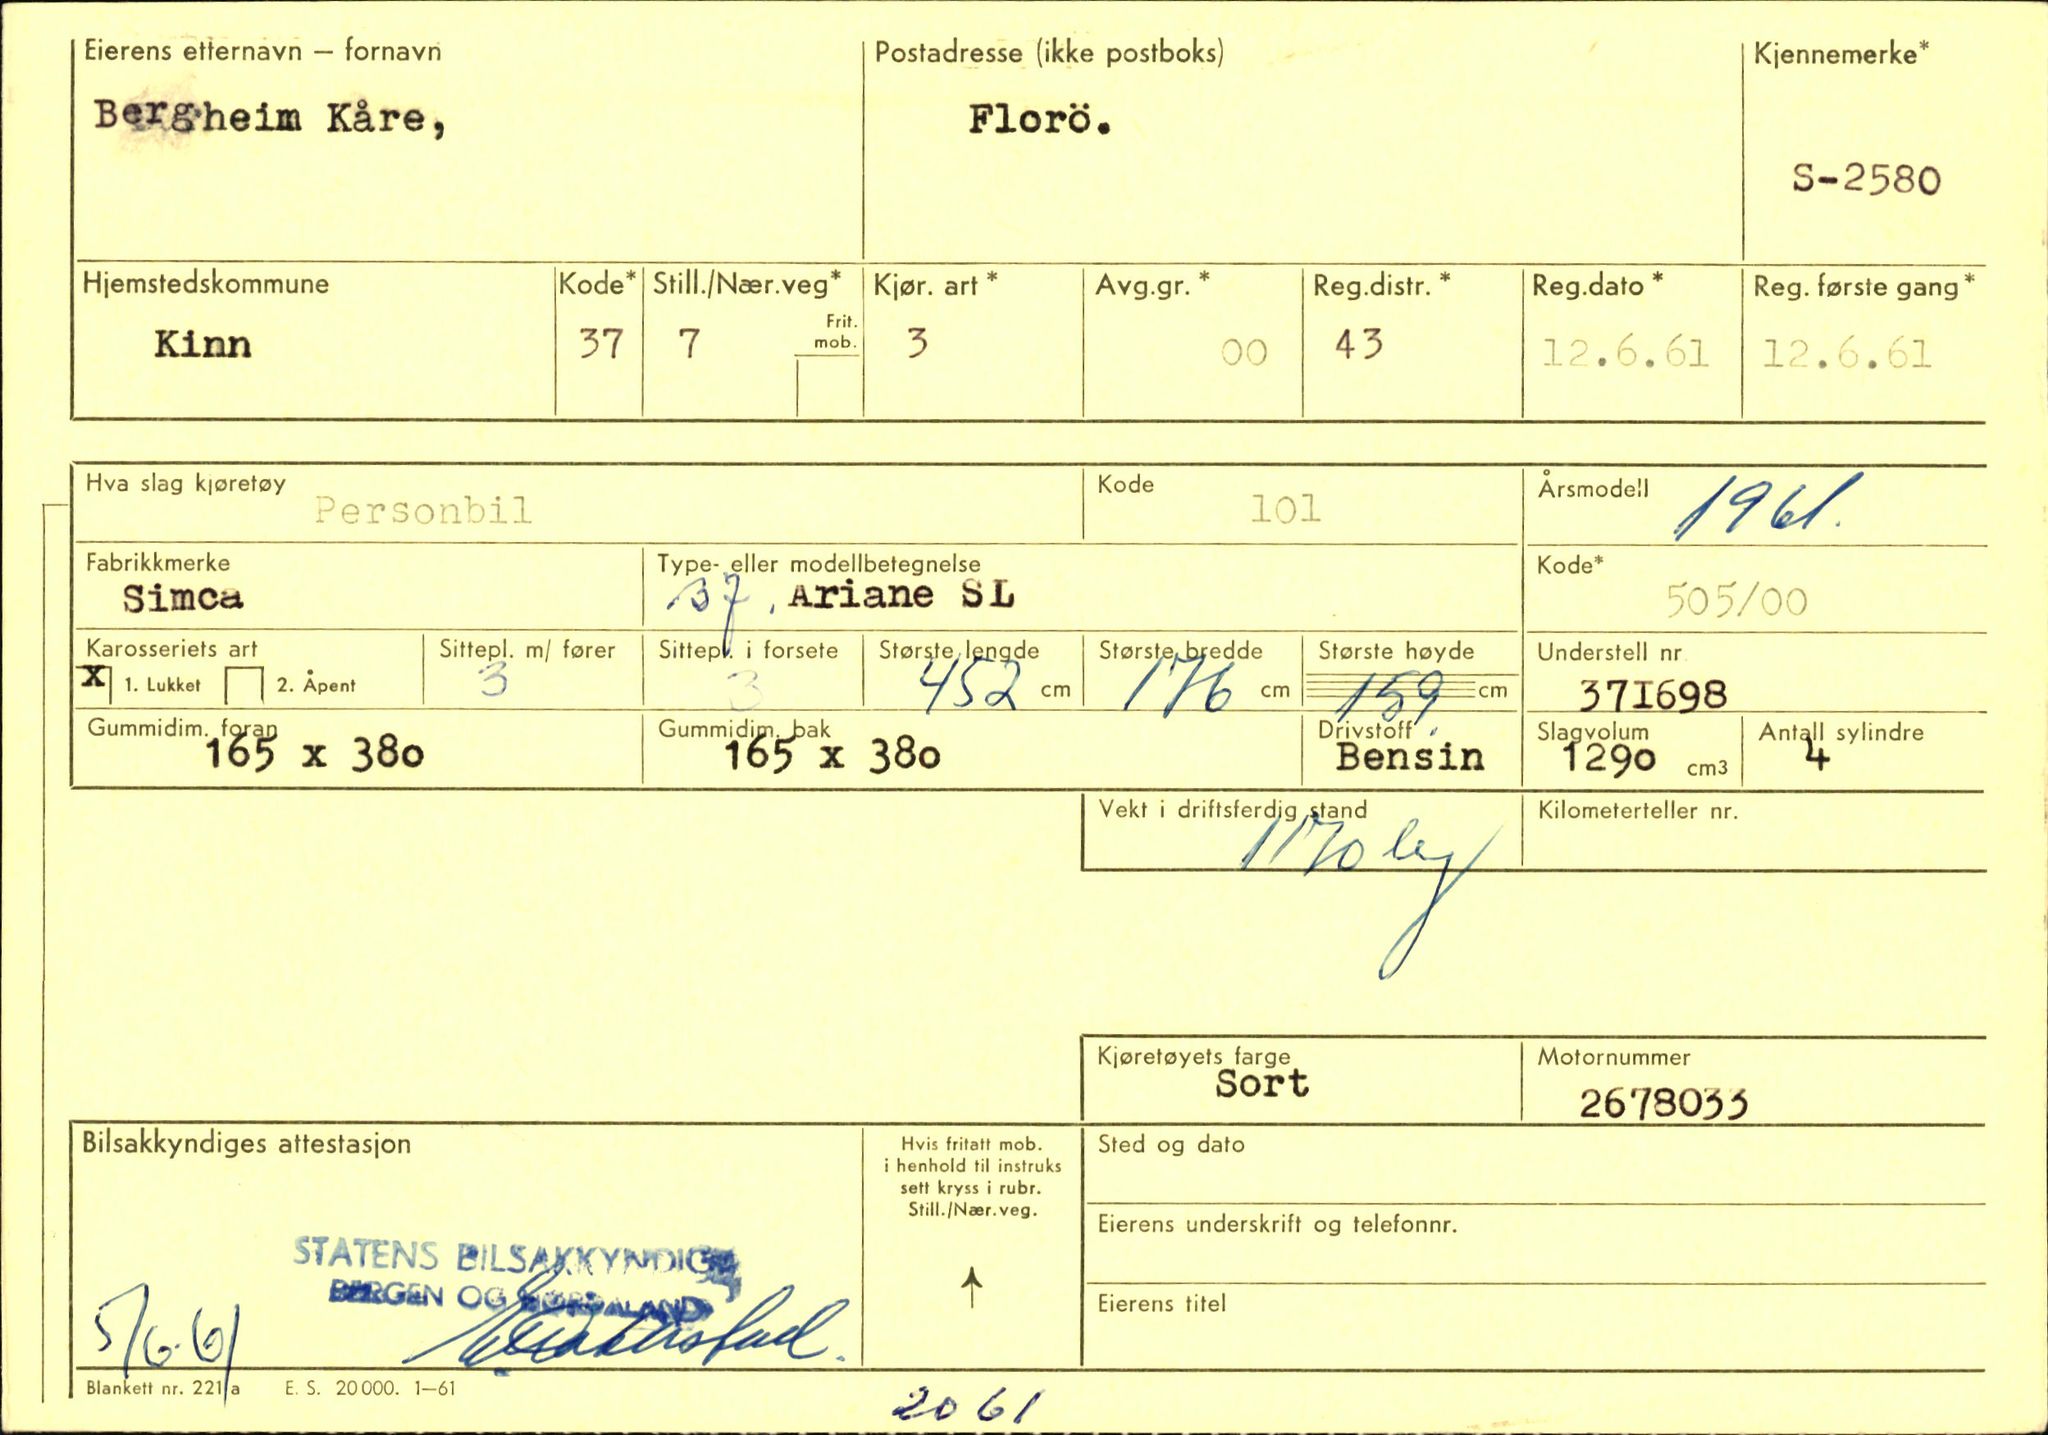 Eierens etternavn – fornavn
Bergheim Kåre,
Postadresse (ikke postboks)
Florö.
Kjennemerke*
S-2580
Hjemstedskommune
Kinn
Kode*
37
Still./Nær.veg*
7
Frit.
mob.
Kjør. art *
3
Avg.gr. *
00
Reg.distr. *
43
Reg.dato *
12.6.61
Reg. første gang*
12.6.61
Hva slag kjøretøy
Personbil
Kode
101
Årsmodell
1961.
Fabrikkmerke
Simca
Type- eller modellbetegnelse
37, Ariane SL
Kode*
505/00
Karosseriets art
X 1. Lukket 2. Åpent
Sittepl. m/ fører
3
Sittepl. i forsete
3
Største lengde
452 cm
Største bredde
176 cm
Største høyde
159 cm
Understell nr
371698
Gummidim. foran
165 x 380
Gummidim. bak
165 x 380
Drivstoff
Bensin
Slagvolum
1290 cm3
Antall sylindre
4
Vekt i driftsferdig stand
1170 kg
Kilometerteller nr.
Kjøretøyets farge
Sort
Motornummer
2678033
Bilsakkyndiges attestasjon
STATENS BILSAKKYNDIGE
BERGEN OG HORDALAND
5/6.61
Hvis fritatt mob.
i henhold til instruks
sett kryss i rubr.
Still./Nær.veg.
Sted og dato
Eierens underskrift og telefonnr.
Eierens titel
Blankett nr. 221/a E. S. 20 000. 1–61
2061